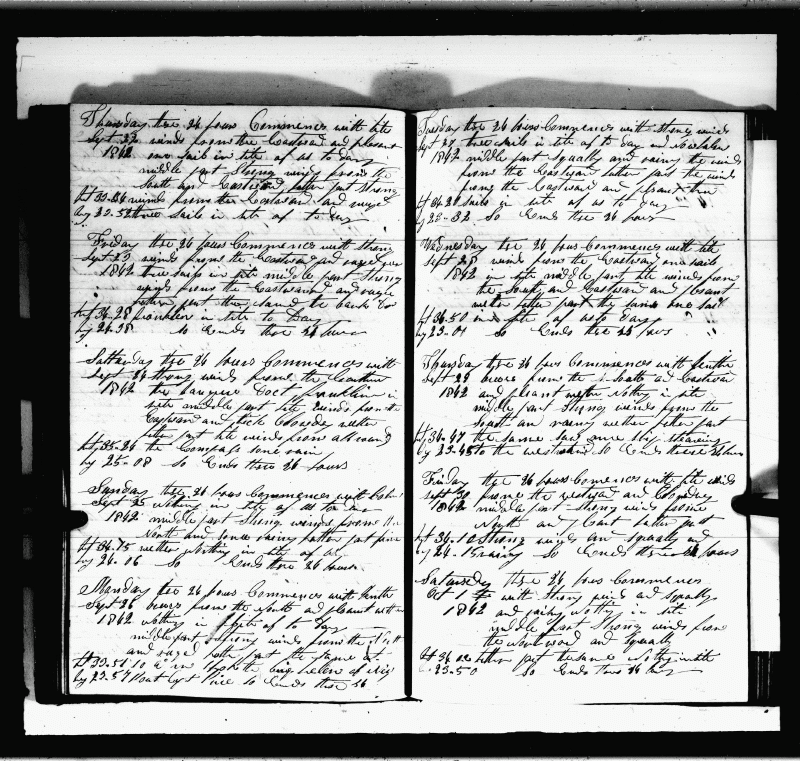 Thursday these 24 hours Commences with lite
Sept 22 winds from the Eastward and pleasent
1842 one sail in site of us to day
middle part Strong winds from the
South and Eastward latter part Strong
winds from the Eastward and
three Sails in site of to day
Friday these 24 hours Commences with Strong
Sept 23 winds from the Eastward and
1842 two sails in site middle part Strong
winds from the Eastward and
latter part the same the bark Doc
lat 36-28 Franklin in site to Day
lg 24-38 So Ends these 24 hours
Satturday these 24 hours Commences with
Sept 24 Strong winds from the
1842 the barque Doct Franklin in
site middle part lite winds from the
Eastward and thick Cloudy wether
latter part lite winds from all round
lat 35-26 the Compass some rain
lg 25-08 So Ends these 24 hours
Sunday these 24 hours Commences with
Sept 25 Nothing in site of us to day
1842 middle part Strong winds from the
North and latter part fine
lat 36-15 wether Nothing in site of us
lg 24-16 So Ends these 24 hours
Monday these 24 hours Commences with Senthe
Sept 26 from the South ad pleasent wether
1842 Nothing in site of to day
middle part Strong winds from the
and latter part the same at
10 a m Spoke the brig
lg 23-57 So Ends these 24
Tuesday these 24 hours Commences with Strong winds
Sept 27 two sails in site of to day
1842 middle part Squally and rainy the winds
from the Eastward latter part the winds
from the Eastward and pleasent two
sails in site of us to day
lg 23-32 So Ends these 24 hours
Wednesday these 24 hours Commences with lite
Sept 28 winds from the Eastward one sail
1842 in site middle part lite winds from
the South and Eastward and pleasant
wether latter part the same one Sail
lat 36-50 in site of us to day
lg 23-01 So Ends these 24 hours
Thursday these 24 hours Commences with Senthe
Sept 29 from the South ad Eastward
1842 and plesant wether Nothing in site
middle part Strong winds from the
South an rainy wether latter part
lat 36-47 the same saw one Ship stearing
lg 23-45 to the westward So Ends these 24 hours
Friday these 24 hours Comences with lite winds
sept 30 frome the westward an Cloudey
1842 middle part Strong winds frome
North and East latter part
lat 36-10 Strong winds an Squally and
lg 24-15 raining So Ends these 24 hours
Saturday these 24 hours Commences
Oct 1 with Strong winds ad Squally
1842 and Nothing in site
middle part Strong winds from
the Northward and Squally
latter part the same Nothing in site
23-50 So Ends thes 24 hours